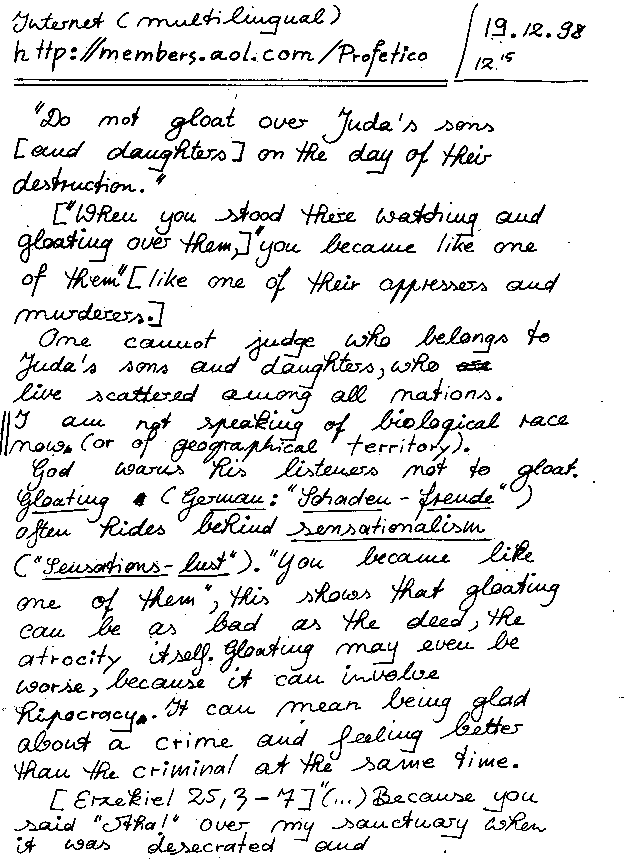 Internet (multilingual)
http://members.aol.com/Profetico
19.12.98
12.15
"Do not gloat over Juda's sons
[and daughters] on the day of their
destruction."
["When you stood there watching and
gloating over them,] "you became like one
of them" [like one of their oppressers and
murderers.]
One cannot judge who belongs to
Juda's sons and daughters, who
live scattered among all nations.
I am not speaking of biological race
now. (or of geographical territory).
God warns his listeners not to gloat.
Gloating (German: "Schaden-freude")
often hides behind sensationalism
("Sensations-lust"). "You became like
one of them", this shows that gloating
can be as bad as the deed, the
atrocity itself. Gloating may even be
worse, because it can involve
hipocracy. It can mean being glad
about a crime and feeling better
than the criminal at the same time.
[Ezekiel 25,3-7] "(...) Because you
said "Aha!" over my sanctuary when
it was desecrated and